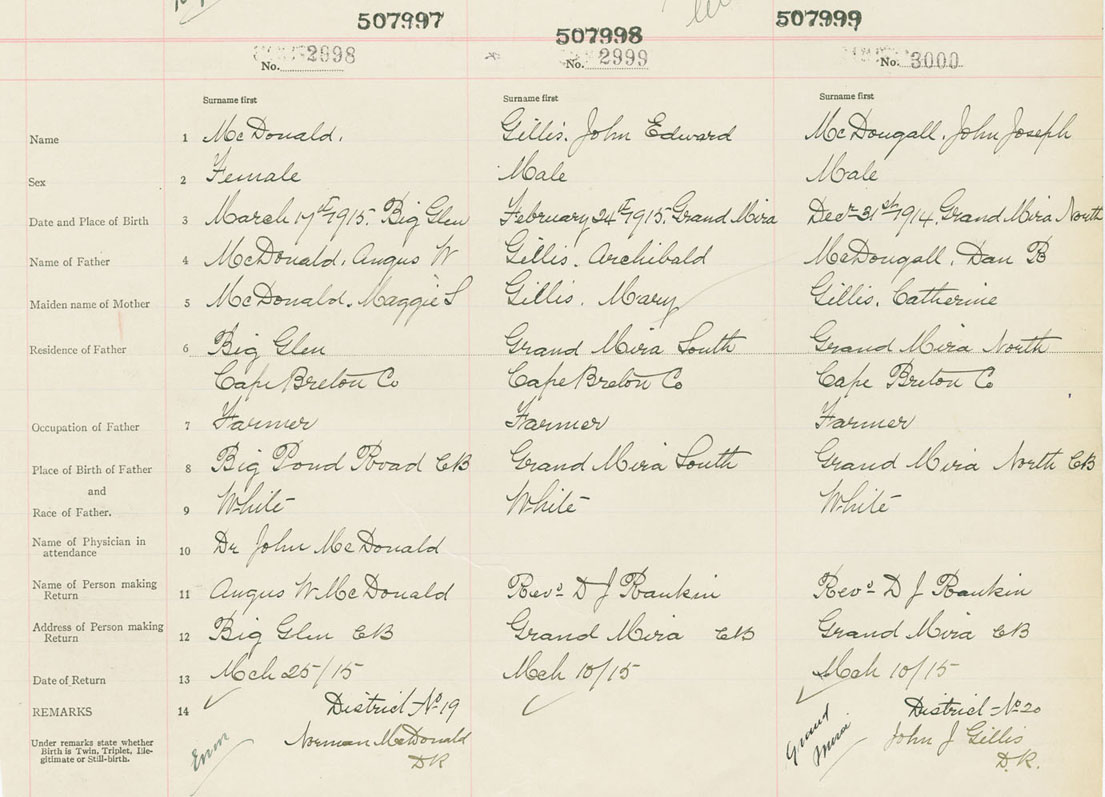 507997 507998 507999
No. 2998 No. 2999 No. 3000
Surname first Surname first Surname first
Name 1 McDonald. Gillis. John Edward McDougall. John Joseph
Sex 2 Female Male Male
Date and Place of Birth 3 March 17th 1915. Big Glen February 24th 1915. Grand Mira Decr 31st 1914. Grand Mira North
Name of Father 4 McDonald. Angus W Gillis. Archibald McDougall. Dan B
Maiden name of Mother 5 McDonald. Maggie S Gillis. Mary Gillis. Catherine
Residence of Father 6 Big Glen Grand Mira South Grand Mira North
Cape Breton Co Cape Breton Co Cape Breton Co
Occupation of Father 7 Farmer Farmer Farmer
Place of Birth of Father 8 Big Pond Road CB Grand Mira South Grand Mira North CB
and
Race of Father. 9 White White White
Name of Physician in
attendance 10 Dr John McDonald
Name of Person making
Return 11 Angus W McDonald Revd D J Rankin Revd D J Rankin
Address of Person making
Return 12 Big Glen CB Grand Mira CB Grand Mira CB
Date of Return 13 Mch 25/15 Mch 10/15 Mch 10/15
REMARKS 14 District No 19 District No 20
Under remarks state whether
Birth is Twin, Triplet, Ille-
gitimate or Still-birth.
Norman McDonald Grand Mira John J Gillis
DR D.R.